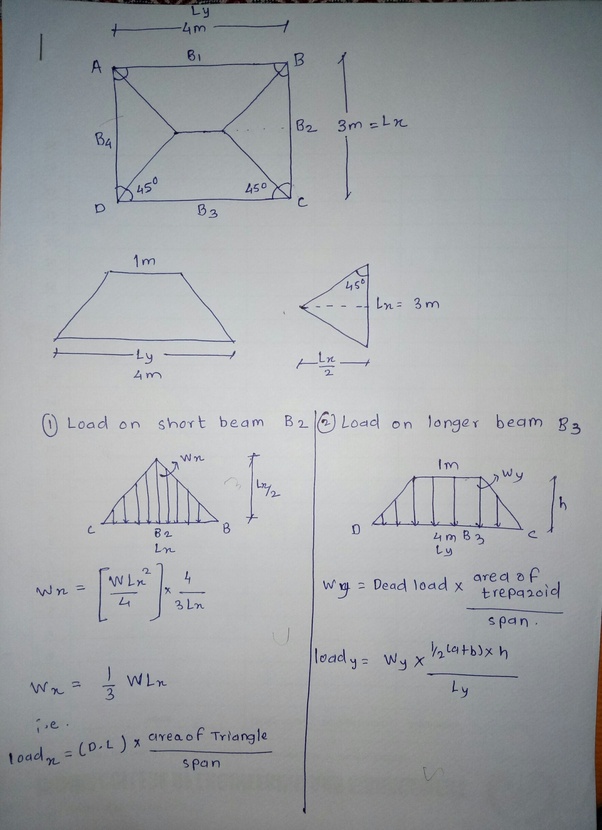 Ly
4m
1
A B1 B
B4 B2 3m = Lx
45° 45°
D B3 C
1m
45°
Lx = 3m
Ly
4m
Lx/2
① Load on short beam B2
Wx
Lx/2
C B2 B
Lx
Wx = [WLx²/4] x 4/3Lx
Wx = 1/3 WLx
i.e.
loadx = (D.L) x area of Triangle / span
② Load on longer beam B3
1m
Wy
h
D 4m B3 C
Ly
Wy = Dead load x area of trepazoid / span.
loady = Wy x 1/2(a+b) x h / Ly